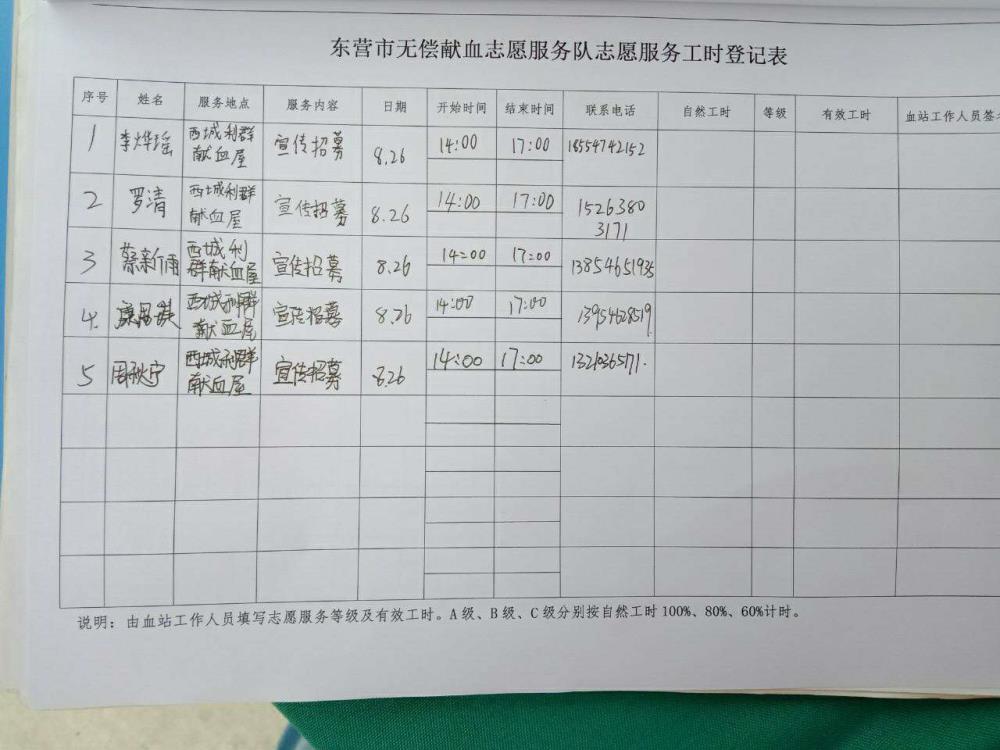 东营市无偿献血志愿服务队志愿服务工时登记表
序号 姓名 服务地点 服务内容 日期 开始时间 结束时间 联系电话 自然工时 等级 有效工时 血站工作人员签
1 李烨瑶 西城利群 宣传招募 8.26 14:00 17:00 18554742152
献血屋
2 罗清 西城利群 宣传招募 8.26 14:00 17:00 1526380
献血屋 3171
3 蔡新雨 西城利 宣传招募 8.26 14:00 17:00 13854651935
群献血屋
4. 西城利群 宣传招募 8.26 14:00 17:00 13954628519
献血屋
5 周秋宁 西城利群 宣传招募 8.26 14:00 17:00
献血屋
说明：由血站工作人员填写志愿服务等级及有效工时。A级、B级、C级分别按自然工时100%、80%、60%计时。